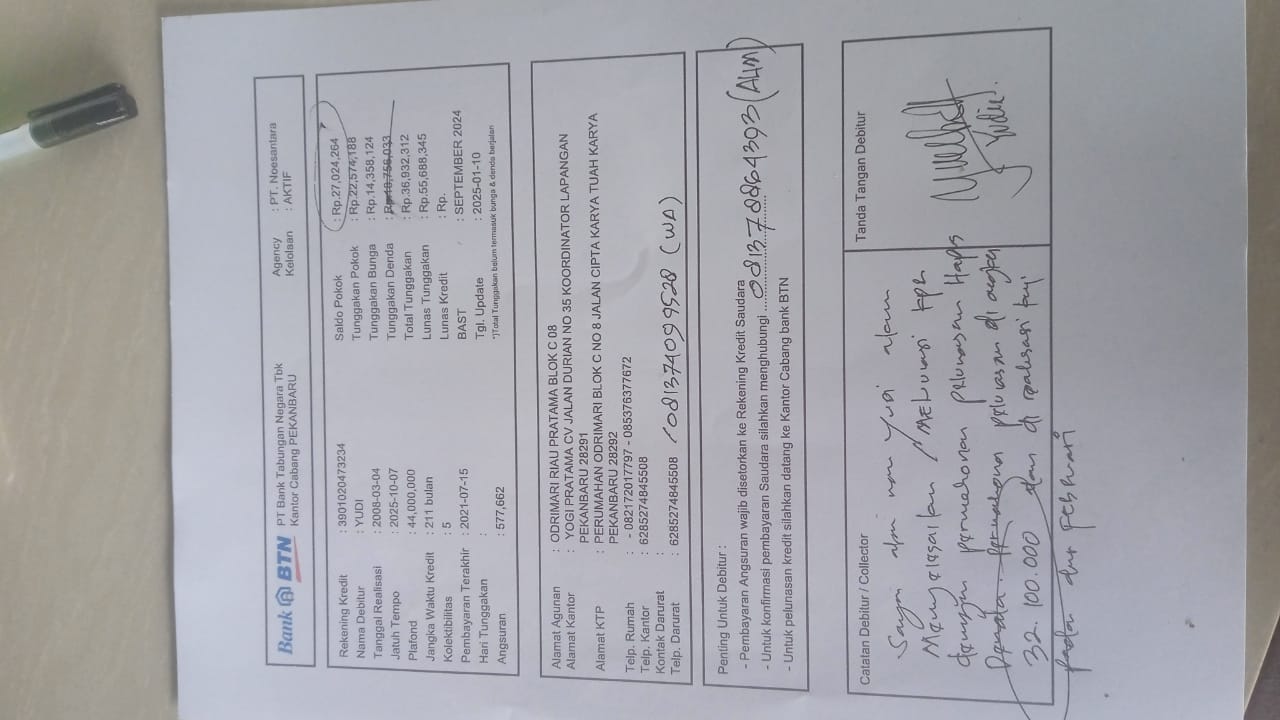 Bank BTN
PT Bank Tabungan Negara Tbk
Kantor Cabang PEKANBARU
Agency : PT. Noesantara
Kelolaan : AKTIF
Rekening Kredit : 3901020473234
Nama Debitur : YUDI
Tanggal Realisasi : 2008-03-04
Jatuh Tempo : 2025-10-07
Plafond : 44,000,000
Jangka Waktu Kredit : 211 bulan
Kolektibilitas : 5
Pembayaran Terakhir : 2021-07-15
Hari Tunggakan :
Angsuran : 577,662
Saldo Pokok : Rp.27,024,264
Tunggakan Pokok : Rp.22,574,188
Tunggakan Bunga : Rp.14,358,124
Tunggakan Denda : Rp18,756,033
Total Tunggakan : Rp.36,932,312
Lunas Tunggakan : Rp.55,688,345
Lunas Kredit : Rp.
BAST : SEPTEMBER 2024
Tgl. Update : 2025-01-10
*)Total Tunggakan belum termasuk bunga & denda berjalan
Alamat Agunan : ODRIMARI RIAU PRATAMA BLOK C 08
Alamat Kantor : YOGI PRATAMA CV JALAN DURIAN NO 35 KOORDINATOR LAPANGAN
PEKANBARU 28291
Alamat KTP : PERUMAHAN ODRIMARI BLOK C NO 8 JALAN CIPTA KARYA TUAH KARYA
PEKANBARU 28292
Telp. Rumah : - 082172017797 - 085376377672
Telp. Kantor : 6285274845508
Kontak Darurat :
Telp. Darurat : 6285274845508 / 081374099528 (WA)
Penting Untuk Debitur :
- Pembayaran Angsuran wajib disetorkan ke Rekening Kredit Saudara
- Untuk konfirmasi pembayaran Saudara silahkan menghubungi 081378864393 (ALIM)
- Untuk pelunasan kredit silahkan datang ke Kantor Cabang bank BTN
Catatan Debitur / Collector
Tanda Tangan Debitur
Saya atas nama Yudi akan
Menyelesaikan / Melunasi KPR
dengan permohonan pelunasan Hapus
Denda. permohonan pelunasan di angka
32.100.000 dan di realisasi
pada dur februari
Yudi.